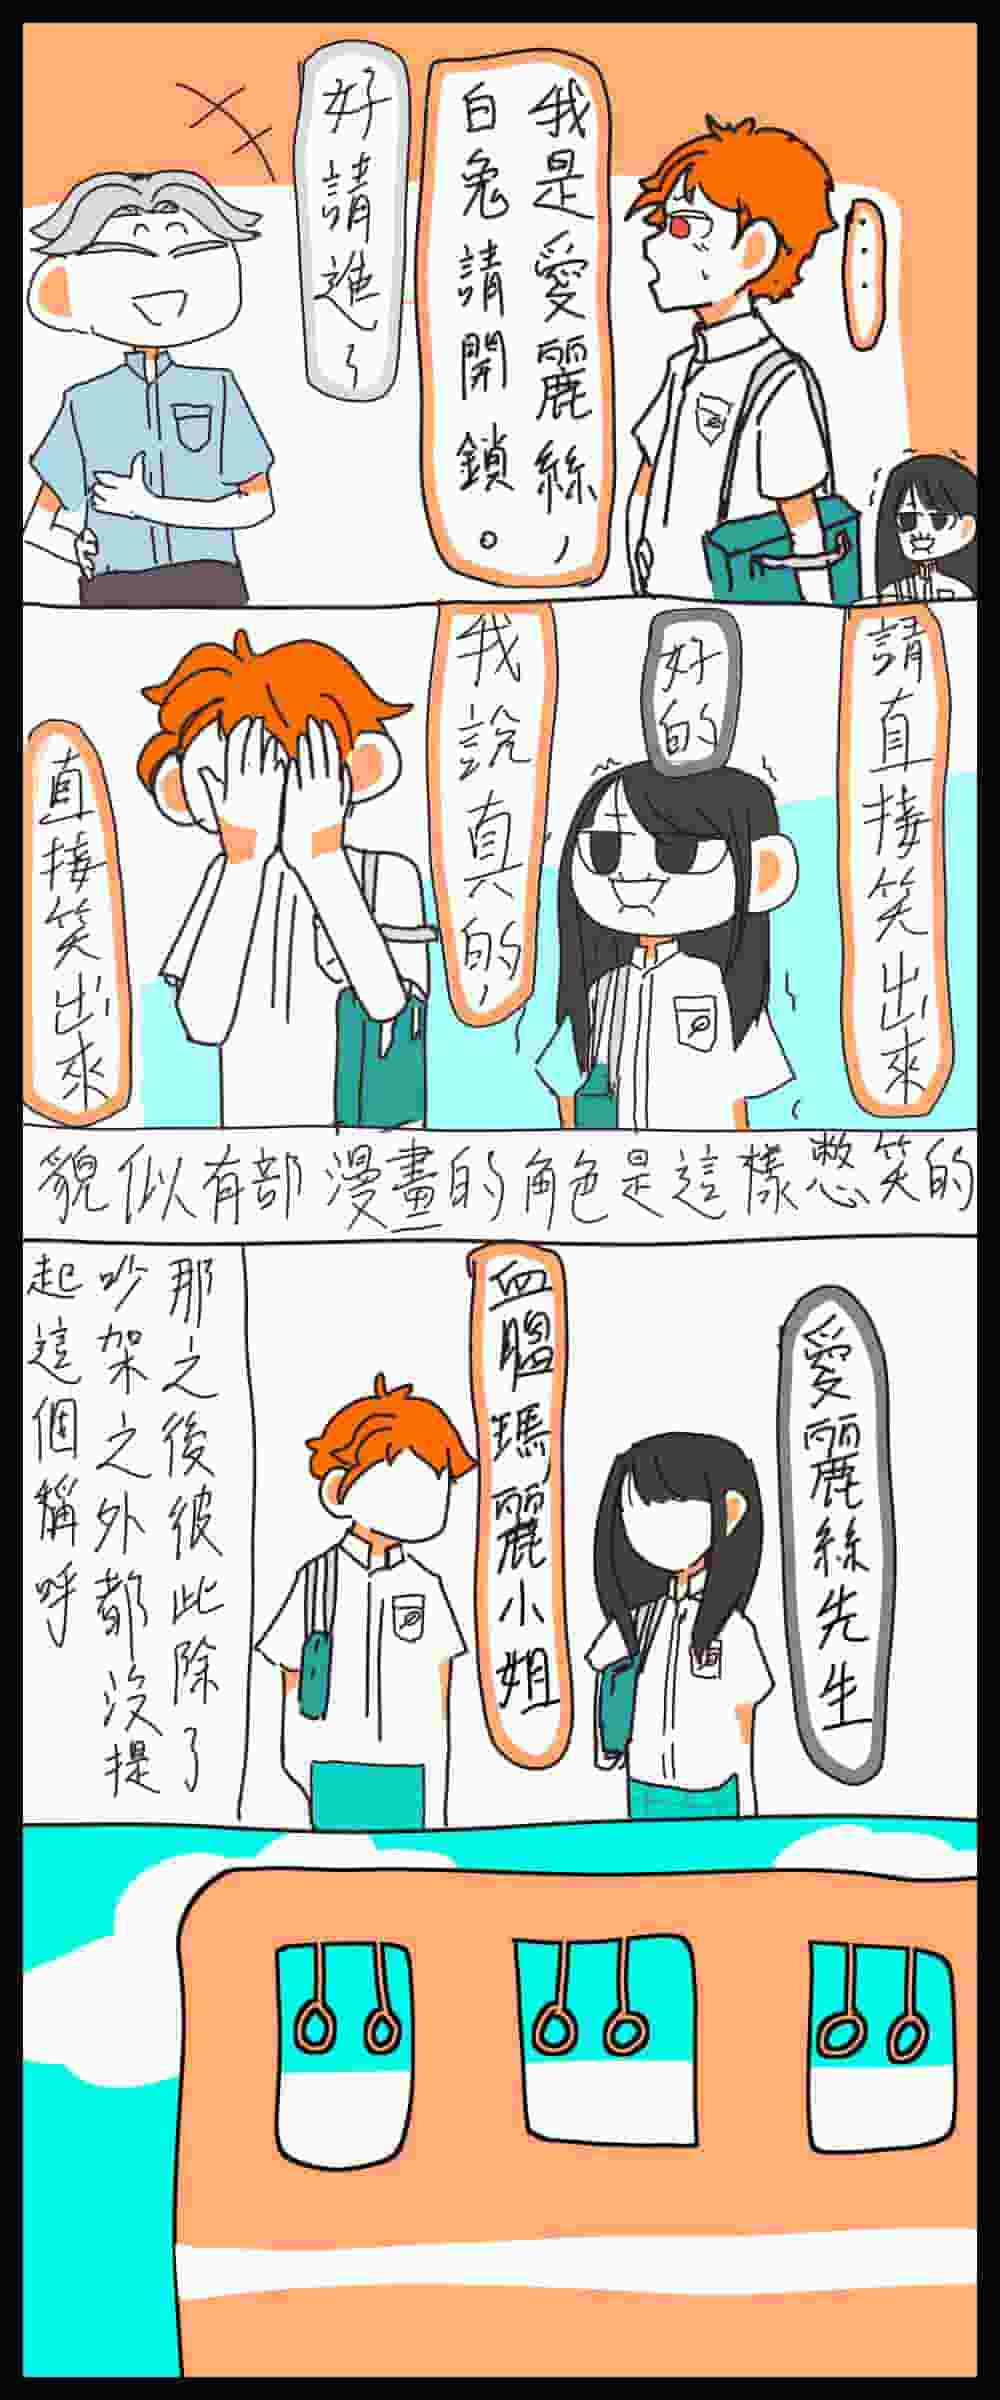 ……
我是愛麗絲，
白兔請開鎖。
好請進～
請直接笑出來
好的
我說真的，
直接笑出來
貌似有部漫畫的角色是這樣憋笑的
愛麗絲先生
血腥瑪麗小姐
那之後彼此除了
吵架之外都沒提
起這個稱呼